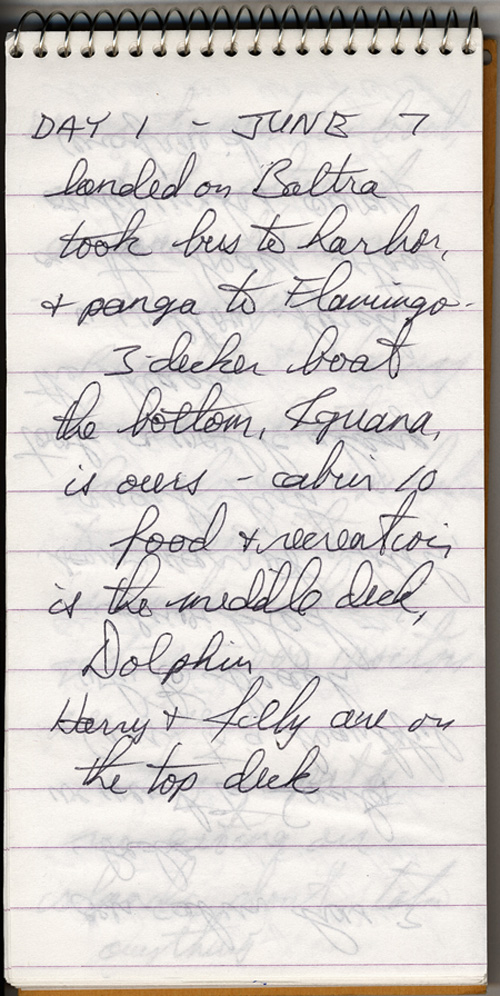 DAY 1 - JUNE 7
landed on Baltra
took bus to harbor,
+ panga to Flamingo -
3-decker boat
the bottom, Iguana,
is ours - cabin 10
food + recreation
is the middle deck,
Dolphin
Harry + Jilly are on
the top deck